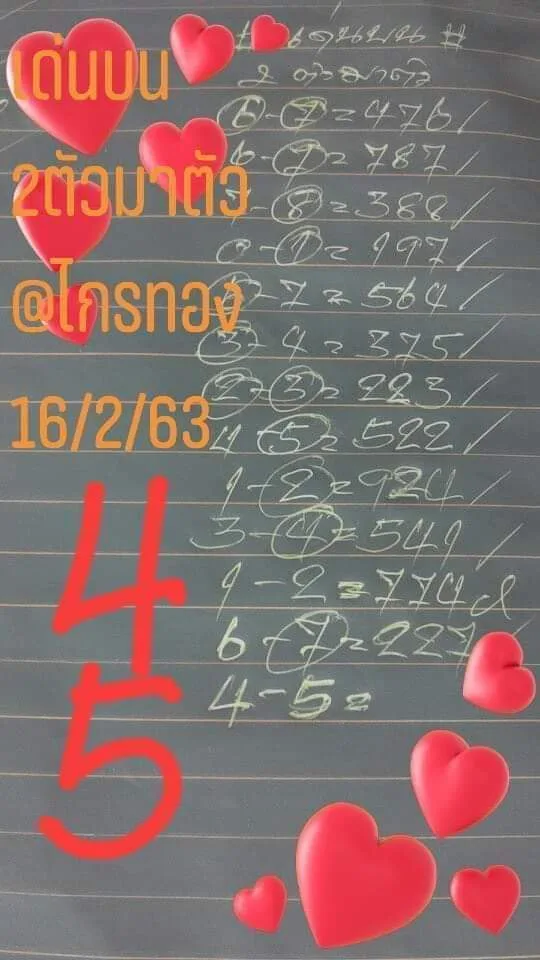 # เด่นบน #
เด่นบน
2 ตัวมาตัว
6-7=476/
6-7=787/
2ตัวมาตัว
7-8=388/
0-1=197/
@ไกรทอง
6-7=564/
3-4=375/
2-3=223/
16/2/63
4-5=522/
1-2=924/
3-4=541/
1-2=774x
6-7=227/
4-5=
4
5